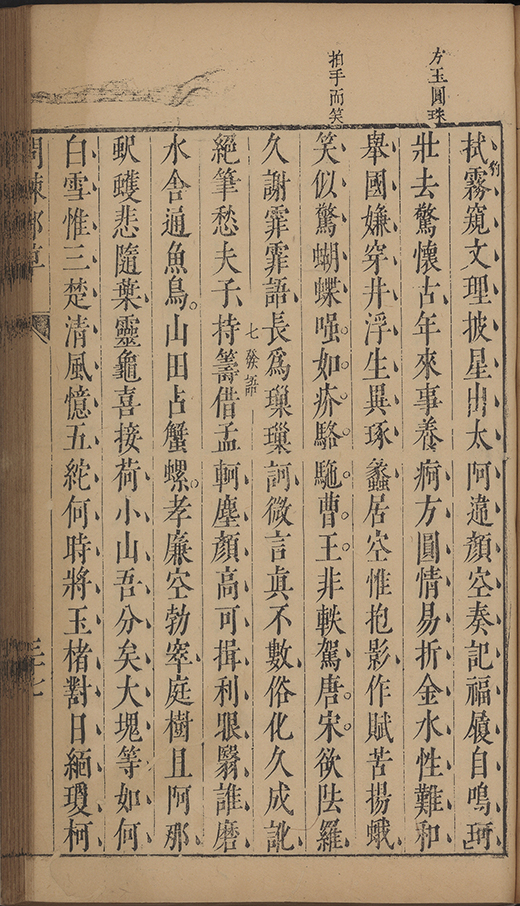 方玉圓珠
拍手而笑
拭霧窺文理披星出太阿違顔空奏記福履自鳴珂
壯去驚懷古年來事養痾方圓情易折金水性難和
舉國嫌穿井浮生異琢蠡居空惟抱影作賦苦揚蛾
笑似驚蝴蝶嗔如疥駱駞曹王非軼駕唐宋欲阹羅
久謝霏霏語長爲璅璅訶微言眞不數俗化久成訛
七發語
絕筆愁夫子持籌借孟軻塵顔高可揖利眼翳誰磨
水舍通魚鳥山田占蟹螺孝廉空勃窣庭樹且阿那
蚇蠖悲隨葉靈龜喜接荷小山吾分矣大塊等如何
白雪惟三楚清風憶五紽何時將玉楮對日緬瓊柯